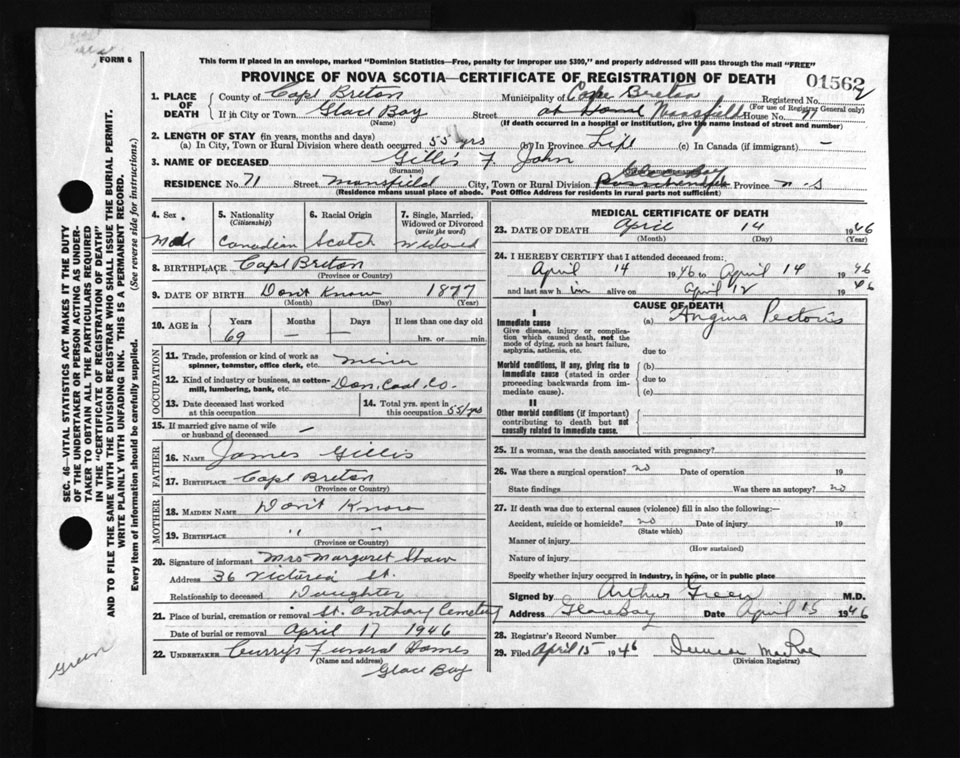 FORM 6
This form if placed in an envelope, marked "Dominion Statistics—Free, penalty for improper use $300," and properly addressed will pass through the mail "FREE"
PROVINCE OF NOVA SCOTIA—CERTIFICATE OF REGISTRATION OF DEATH
01562
1. PLACE OF DEATH County of Cape Breton Municipality of Cape Breton Registered No.
(For use of Registrar General only)
If in City or Town Glace Bay Street at home Mansfield House No. 71
(Name) (If death occurred in a hospital or institution, give the name instead of street and number)
2. LENGTH OF STAY (in years, months and days)
(a) In City, Town or Rural Division where death occurred 55 yrs (b) In Province Life (c) In Canada (if immigrant) —
3. NAME OF DECEASED Gillis F. John
(Surname)
RESIDENCE No. 71 Street Mansfield City, Town or Rural Division Glace Bay Province N.S
(Residence means usual place of abode. Post Office Address for residents in rural parts not sufficient)
4. Sex Male
5. Nationality (Citizenship) Canadian
6. Racial Origin Scotch
7. Single, Married, Widowed or Divorced (write the word) Widowed
8. BIRTHPLACE Cape Breton
(Province or Country)
9. DATE OF BIRTH Don't Know 1877
(Month) (Day) (Year)
10. AGE in Years 69 Months — Days — If less than one day old
hrs. or min.
OCCUPATION
11. Trade, profession or kind of work as spinner, teamster, office clerk, etc. Miner
12. Kind of industry or business, as cotton-mill, lumbering, bank, etc. Dom. Coal Co.
13. Date deceased last worked at this occupation
14. Total yrs. spent in this occupation 55 yrs
15. If married give name of wife or husband of deceased —
FATHER
16. NAME James Gillis
17. BIRTHPLACE Cape Breton
(Province or Country)
MOTHER
18. MAIDEN NAME Don't Know
19. BIRTHPLACE " "
(Province or Country)
20. Signature of informant Mrs Margaret Shaw
Address 36 Victoria St.
Relationship to deceased Daughter
21. Place of burial, cremation or removal St. Anthony Cemetery
Date of burial or removal April 17 1946
22. UNDERTAKER Curry's Funeral Homes
(Name and address)
Glace Bay
MEDICAL CERTIFICATE OF DEATH
23. DATE OF DEATH April 14 1946
(Month) (Day) (Year)
24. I HEREBY CERTIFY that I attended deceased from:
April 14 1946 to April 14 1946
and last saw h im alive on April 12 1946
CAUSE OF DEATH
I
Immediate cause (a) Angina Pectoris
Give disease, injury or complication which caused death, not the mode of dying, such as heart failure, asphyxia, asthenia, etc.
due to
Morbid conditions, if any, giving rise to immediate cause (stated in order proceeding backwards from immediate cause).
(b)
due to
(c)
II
Other morbid conditions (if important) contributing to death but not causally related to immediate cause.
25. If a woman, was the death associated with pregnancy?
26. Was there a surgical operation? no Date of operation 19
State findings Was there an autopsy? no
27. If death was due to external causes (violence) fill in also the following:—
Accident, suicide or homicide? no Date of injury 19
(State which)
Manner of injury
(How sustained)
Nature of injury
Specify whether injury occurred in industry, in home, or in public place
Signed by Arthur Green M.D.
Address Glace Bay Date April 15 1946
28. Registrar's Record Number
29. Filed April 15 1946 Duncan MacRae
(Division Registrar)
SEC. 46—VITAL STATISTICS ACT MAKES IT THE DUTY
OF THE UNDERTAKER OR PERSON ACTING AS UNDER-
TAKER TO OBTAIN ALL THE PARTICULARS REQUIRED
IN THE "CERTIFICATE OF REGISTRATION OF DEATH"
AND TO FILE THE SAME WITH THE DIVISION REGISTRAR WHO SHALL ISSUE THE BURIAL PERMIT.
WRITE PLAINLY WITH UNFADING INK. THIS IS A PERMANENT RECORD.
Every item of information should be carefully supplied. (See reverse side for instructions).
Green